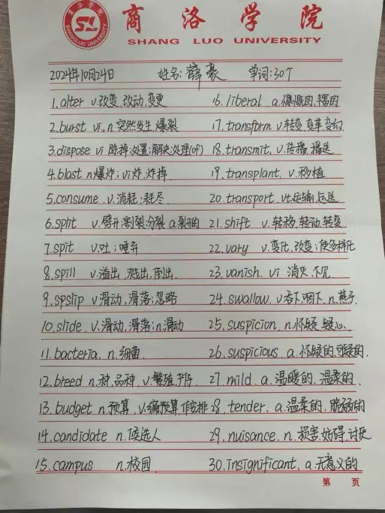 商洛学院
SHANG LUO UNIVERSITY
2024年10月24日 姓名:薛豪 单词:30个
1.alter v.改变,改动,变更
2.burst vi,n 突然发生,爆裂
3.dispose vi 除掉;处置;解决;处理(of)
4.blast n爆炸;vi炸,炸掉
5.consume v.消耗,耗尽
6.split v.劈开;割裂;分裂 a.裂开的
7.spit v.吐;唾弃
8.spill v.溢出,溅出,倒出
9.spslip v.滑动,滑落;忽略
10.slide v.滑动,滑落;n.滑动
11.bacteria. n.细菌
12.breed n.种,品种 v.繁殖,产仔
13.budget n.预算 v.编预算,作安排
14.candidate n.候选人
15.campus n.校园
16.liberal a.慷慨的,
17.transform v.转变,变革,变幻
18.transmit. v.传播,播送
19.transplant. v.移植
20.transport. vt.运输,运送
21.shift v.转移,转动,转变
22.vary v.变化,改变;使多样化
23.vanish. vi 消灭,不见
24.swallow. v.吞下,咽下,n.燕子
25.suspicion. n.怀疑,疑心.
26.suspicious. a.怀疑的,可疑的.
27.mild a.温暖的,温柔的.
28.tender. a.温柔的,脆弱的
29.nuisance. n.损害,妨碍,讨厌
30.insignificant. a.无意义的
第 页